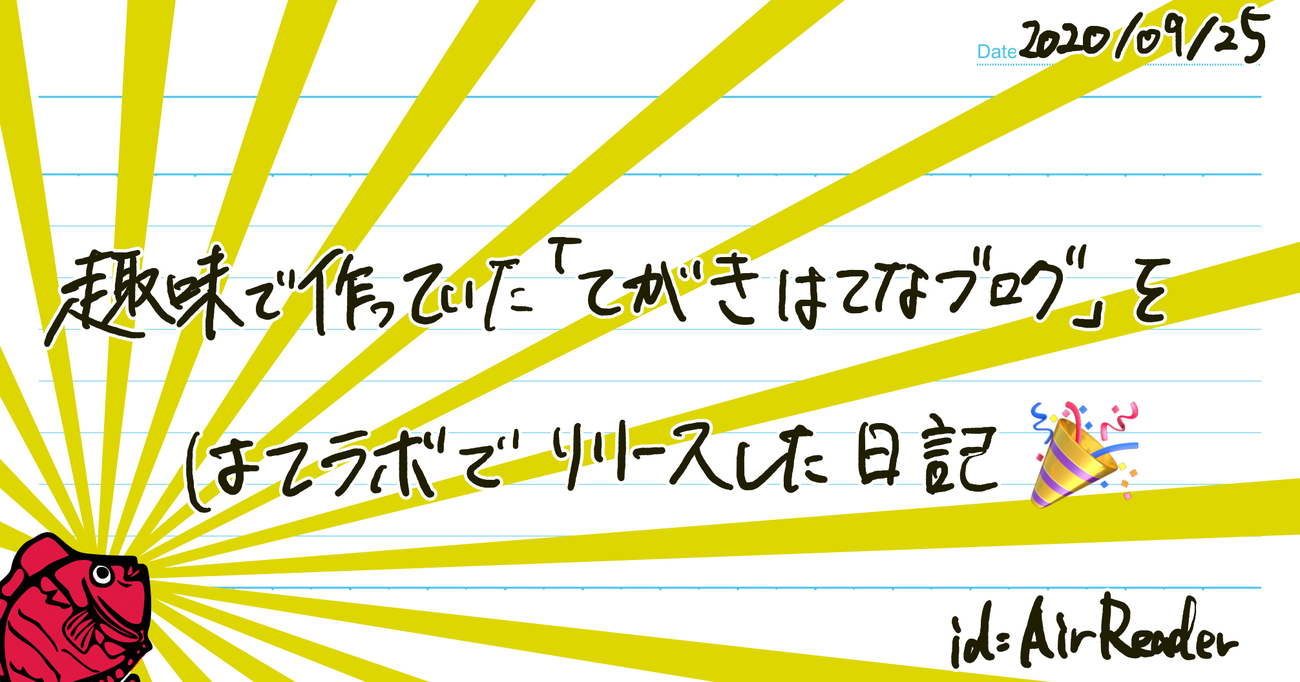 Date 2020/09/25
趣味で作っていた「てがきはてなブログ」を
はてラボでリリースした日記🎉
id=AirReader